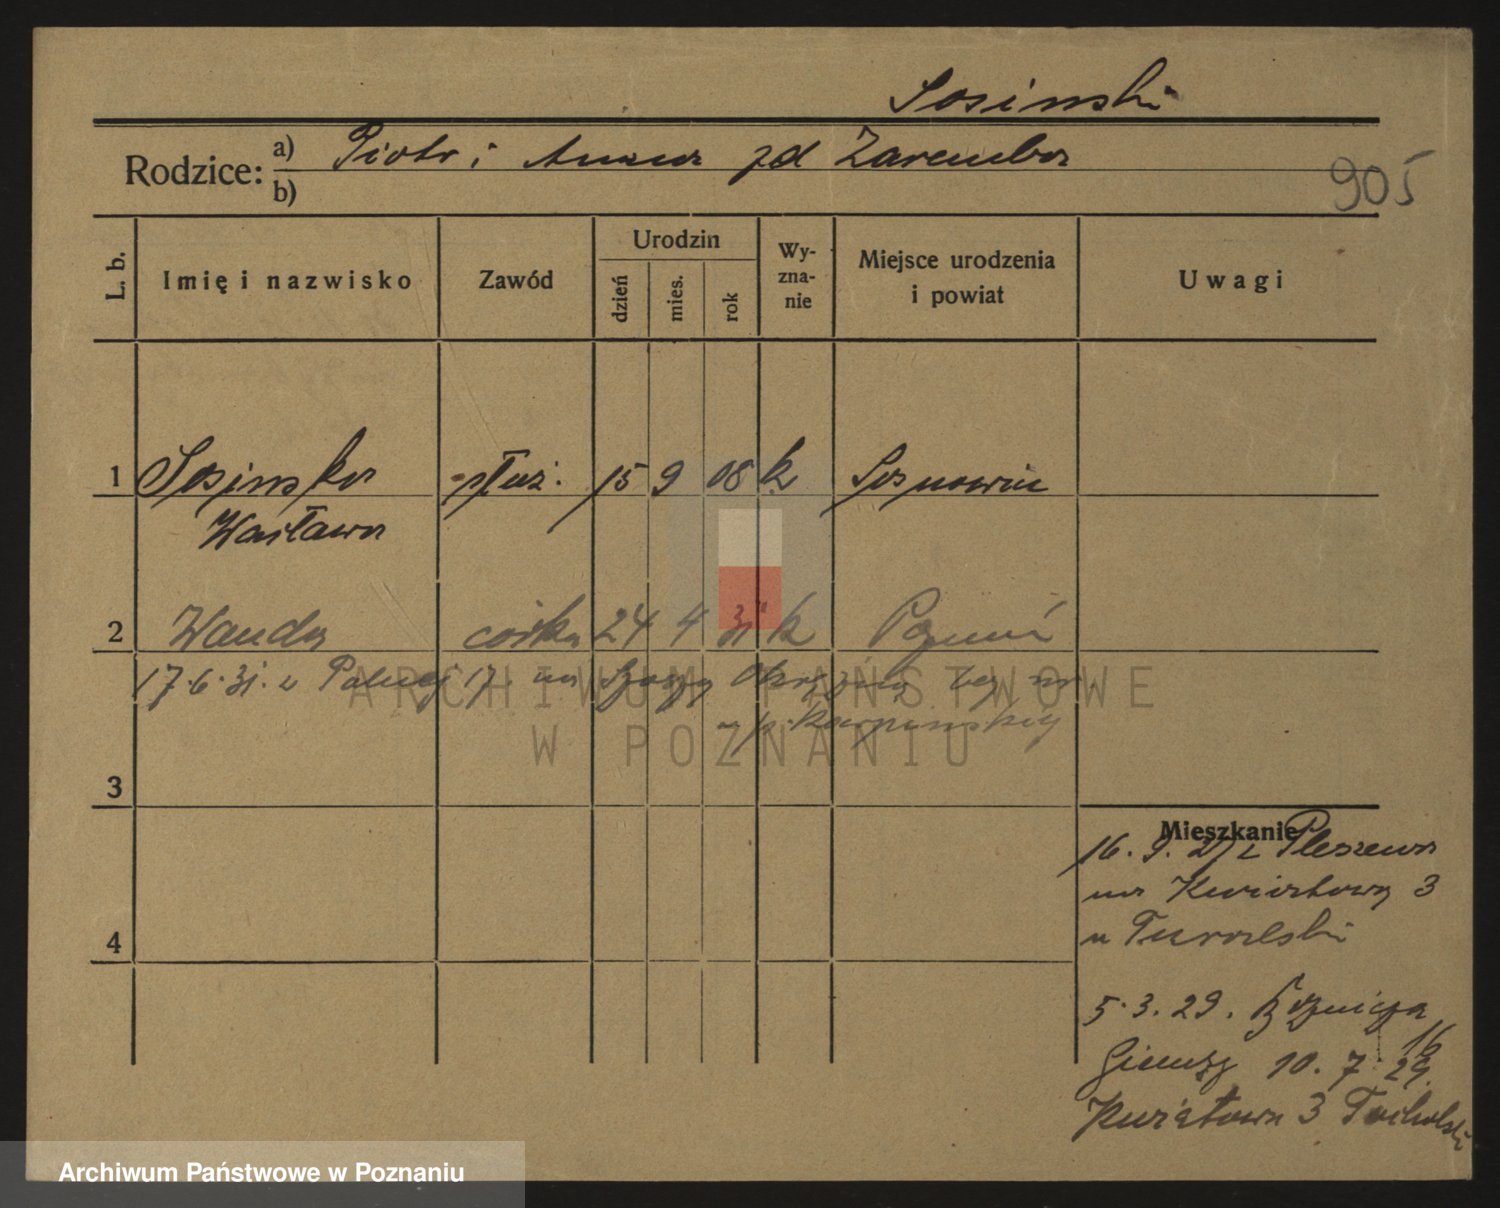 Sosinski
Rodzice: a) Piotr i Anna zd Zaremba
b)
905
L. b. Imię i nazwisko Zawód Urodzin dzień mies. rok Wy-zna-nie Miejsce urodzenia i powiat Uwagi
1 Sosinska służ. 15 9 08 k Sosnowiec
Wacława
2 Wanda córka 24 4 31 k Poznań
17.6.31. z Polnej 17 na Szosę Okrężną bez nr
u p. Karpinskiej
3
Mieszkanie
16. 9. 27 z Pleszewa
na Kwiatową 3
u
4
5.3.29.
10. 7. 29.
16
Kwiatowa 3
ARCHIWUM PAŃSTWOWE
W POZNANIU
Archiwum Państwowe w Poznaniu